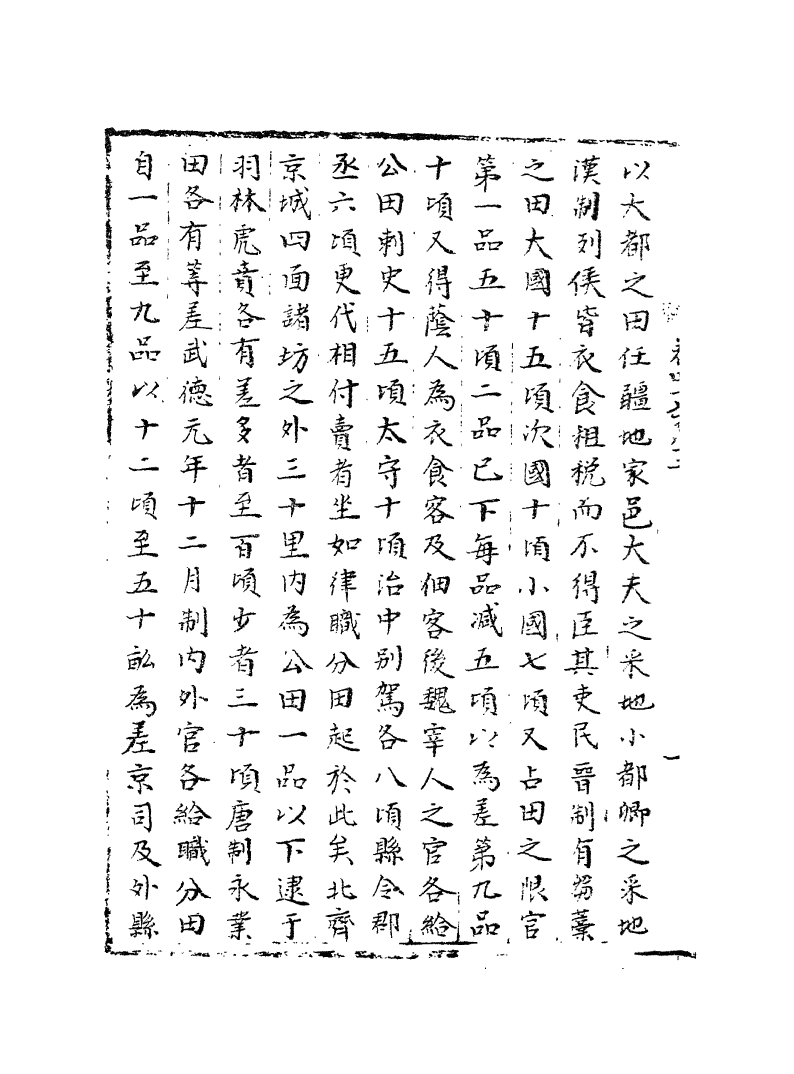 以大都之田任疆地家邑大夫之采地小都卿之采地
漢制列侯皆衣食租稅而不得臣其吏民晉制有芻藁
之田大國十五頃次國十頃小國七頃又占田之限官
第一品五十頃二品已下每品減五頃以為差第九品
十頃又得蔭人為衣食客及佃客後魏宰人之官各給
公田刺史十五頃太守十頃治中別駕各八頃縣令郡
丞六頃更代相付賣者坐如律職分田起於此矣北齊
京城四面諸坊之外三十里內為公田一品以下逮于
羽林虎賁各有差多者至百頃少者三十頃唐制永業
田各有等差武德元年十二月制內外官各給職分田
自一品至九品以十二頃至五十畝為差京司及外縣